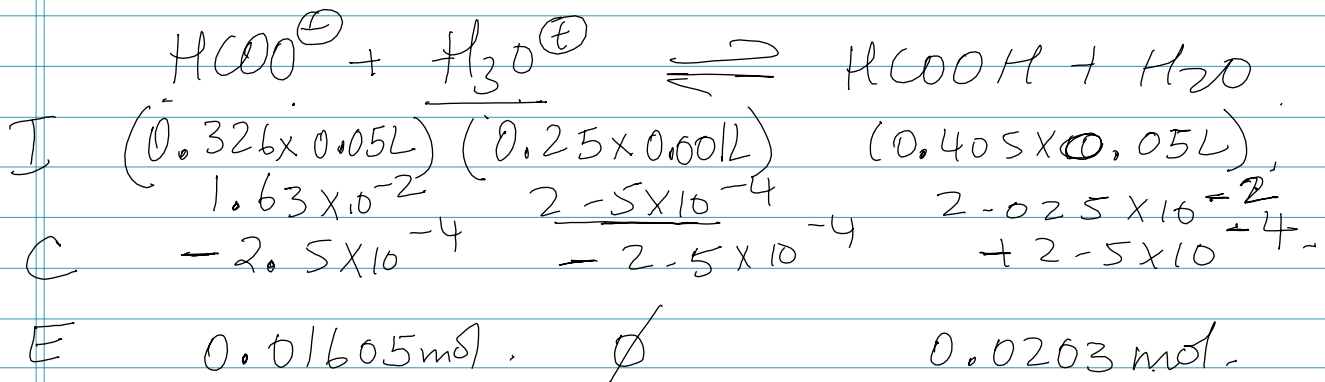 HCOO⊖ + H₃O⊕ ⇌ HCOOH + H₂O
I (0.326×0.05L) (0.25×0.001L) (0.405×0.05L)
1.63×10⁻² 2-5×10⁻⁴ 2-025×10⁻²
C -2.5×10⁻⁴ -2-5×10⁻⁴ +2-5×10⁻⁴
E 0.01605mol. ∅ 0.0203mol.